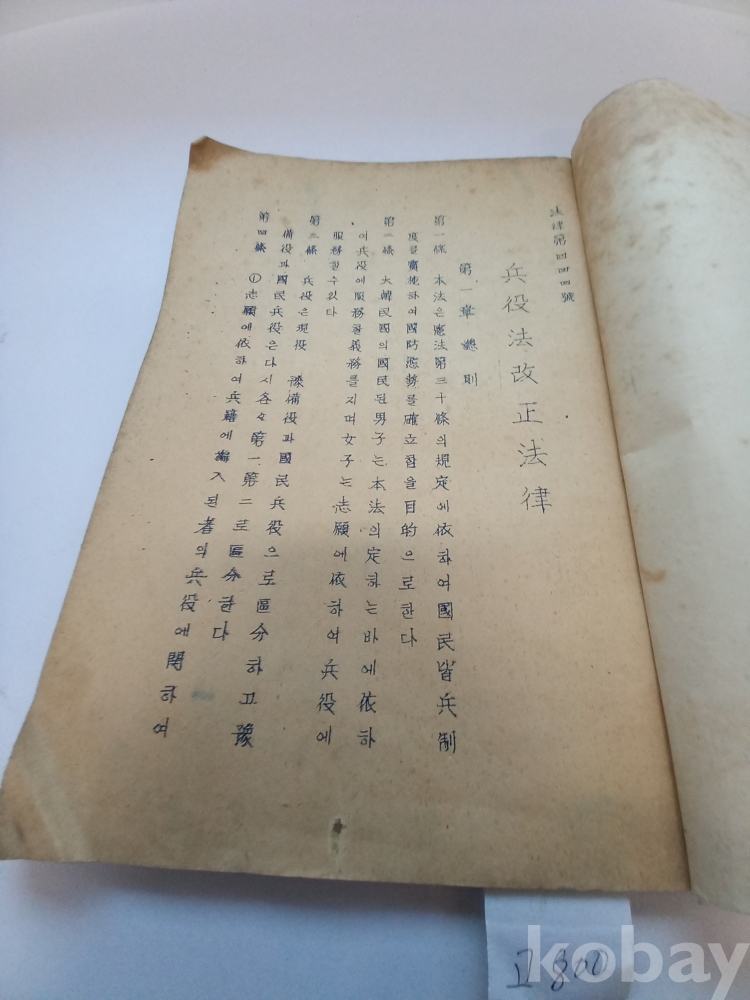 法律第四四四號
兵役法改正法律
第一章 總則
第一條 本法은憲法第三十條의規定에依하여國民皆兵制
度를實施하여國防態勢를確立함을目的으로한다
第二條 大韓民國의國民된男子는本法의定하는바에依하
여兵役에服務할義務를지며女子는志願에依하여兵役에
服務할수있다
第三條 兵役은現役 豫備役과國民兵役으로區分하고豫
備役과國民兵役은다시各々第一第二로區分한다
第四條 ①志願에依하여兵籍에編入된者의兵役에關하여
kobay